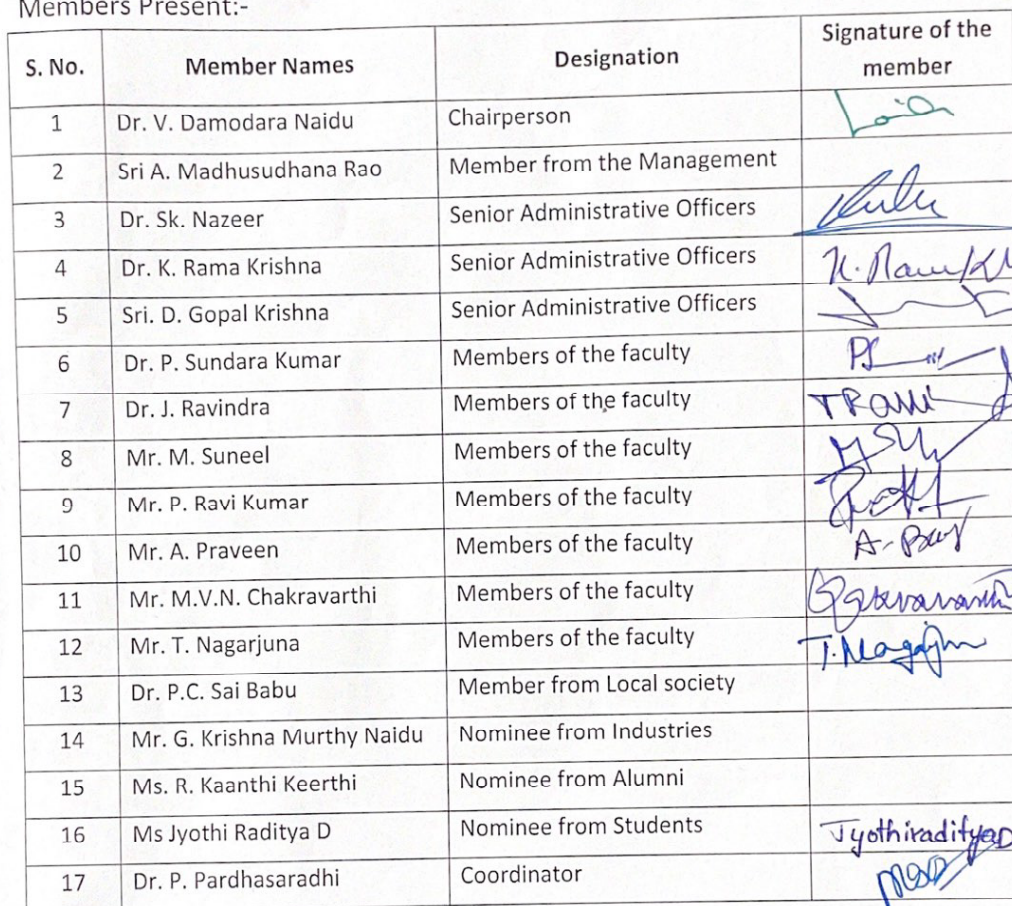 Members Present:-
S. No. Member Names Designation Signature of the
member
1 Dr. V. Damodara Naidu Chairperson
2 Sri A. Madhusudhana Rao Member from the Management
3 Dr. Sk. Nazeer Senior Administrative Officers
4 Dr. K. Rama Krishna Senior Administrative Officers
5 Sri. D. Gopal Krishna Senior Administrative Officers
6 Dr. P. Sundara Kumar Members of the faculty
7 Dr. J. Ravindra Members of the faculty
8 Mr. M. Suneel Members of the faculty
9 Mr. P. Ravi Kumar Members of the faculty
10 Mr. A. Praveen Members of the faculty
11 Mr. M.V.N. Chakravarthi Members of the faculty
12 Mr. T. Nagarjuna Members of the faculty
13 Dr. P.C. Sai Babu Member from Local society
14 Mr. G. Krishna Murthy Naidu Nominee from Industries
15 Ms. R. Kaanthi Keerthi Nominee from Alumni
16 Ms Jyothi Raditya D Nominee from Students JyothiradityaD
17 Dr. P. Pardhasaradhi Coordinator